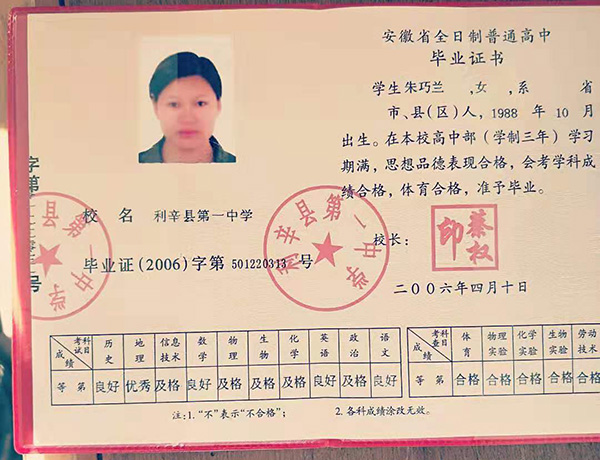 安徽省全日制普通高中
毕业证书
学生朱巧兰 ,女 ,系 省
市、县(区)人, 1988 年 10 月
出生。在本校高中部(学制三年)学习
期满,思想品德表现合格,会考学科成
绩合格,体育合格,准予毕业。
校 名 利辛县第一中学
毕业证(2006)字第 501220313 号
校长:
二〇〇六年四月十日
利辛县第一中学
字第
号
县第一中学
考试科目 历史 地理 信息技术 数学 物理 生物 化学 英语 政治 语文
成绩
等 第 良好 优秀 及格 良好 及格 及格 及格 良好 及格 良好
考查科目 体育 物理实验 化学实验 生物实验 劳动技术
成绩
等 第 合格 合格 合格 合格 合格
注:1.“不”表示“不合格”; 2.各科成绩涂改无效。